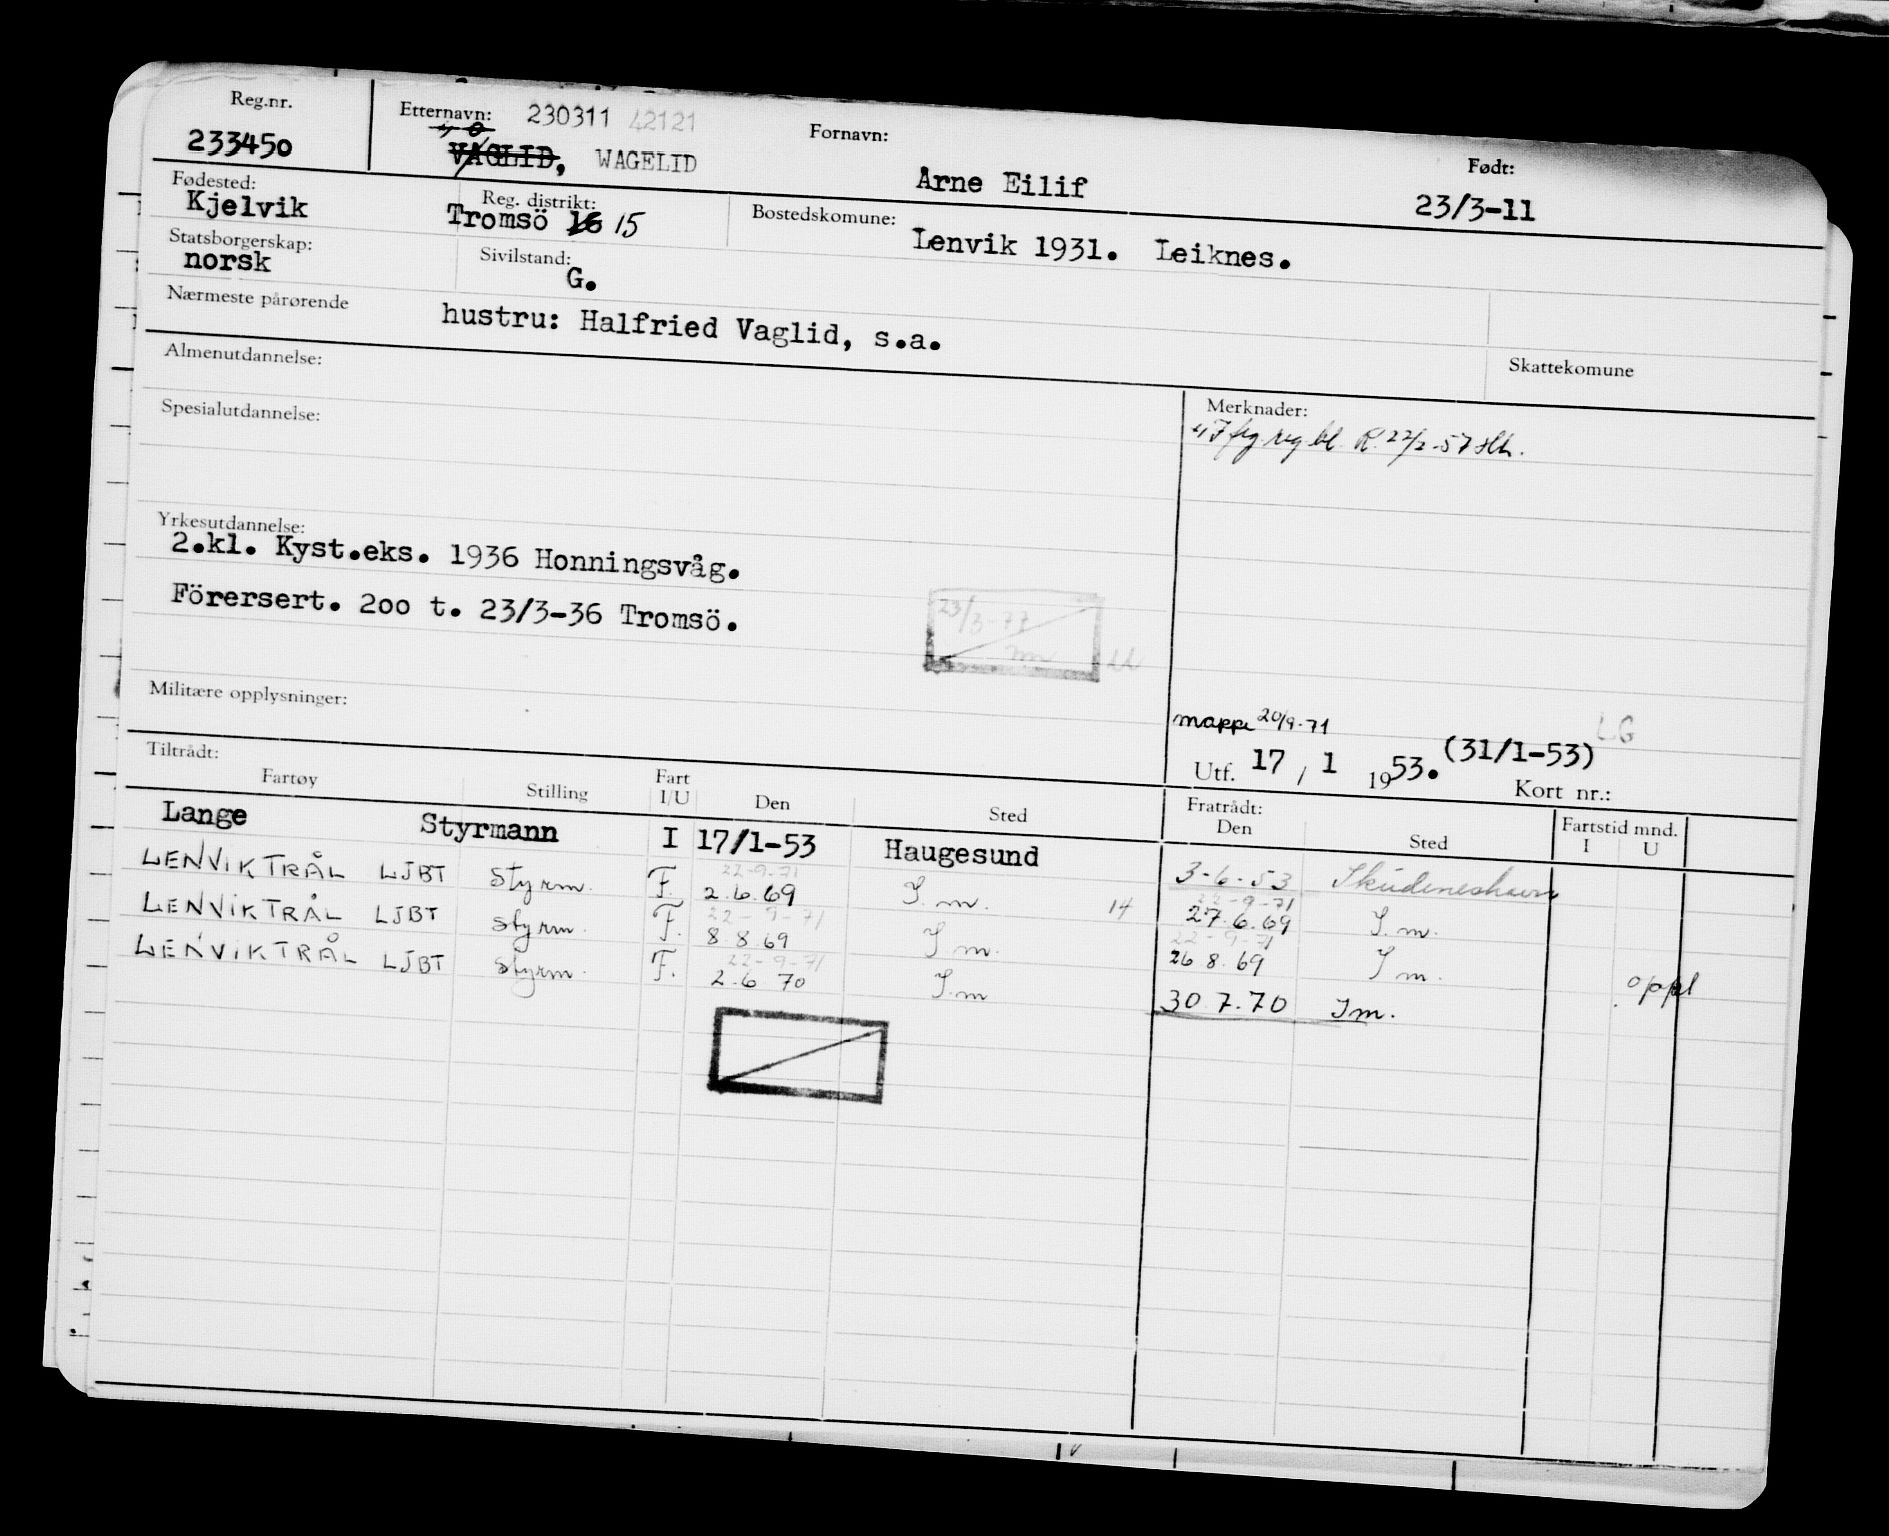 Reg.nr. Etternavn: 230311 42121 Fornavn: Født:
233450 VAGLID, WAGELID Arne Eilif 23/3-11
Fødested: Reg. distrikt: Bostedskomune:
Kjelvik Tromsö 16 15 Lenvik 1931. Leiknes.
Statsborgerskap: Sivilstand:
norsk G.
Nærmeste pårørende hustru: Halfried Vaglid, s.a.
Almenutdannelse: Skattekomune
Spesialutdannelse: Merknader:
R. 22/2-57
Yrkesutdannelse:
2.kl. Kyst.eks. 1936 Honningsvåg.
Förersert. 200 t. 23/3-36 Tromsö.
23/3-77
Militære opplysninger:
mappe 20/9-71 LG
Utf. 17 / 1 1953. (31/1-53)
Kort nr.:
Tiltrådt: Fratrådt: Fartstid mnd.
Fartøy Stilling Fart I/U Den Sted Den Sted I U
Lange Styrmann I 17/1-53 Haugesund 3-6-53 Skudeneshavn
22-9-71 22-9-71
LENVIKTRÅL LJBT Styrm. F. 2.6.69 I.m. 14 27.6.69 I.m.
22-9-71 22-9-71
LENVIKTRÅL LJBT Styrm. F. 8 8 69 I m. 26 8.69 I m.
22-9-71
LENVIKTRÅL LJBT Styrm. F. 2.6 70 I.m 30 7.70 Im. oppl